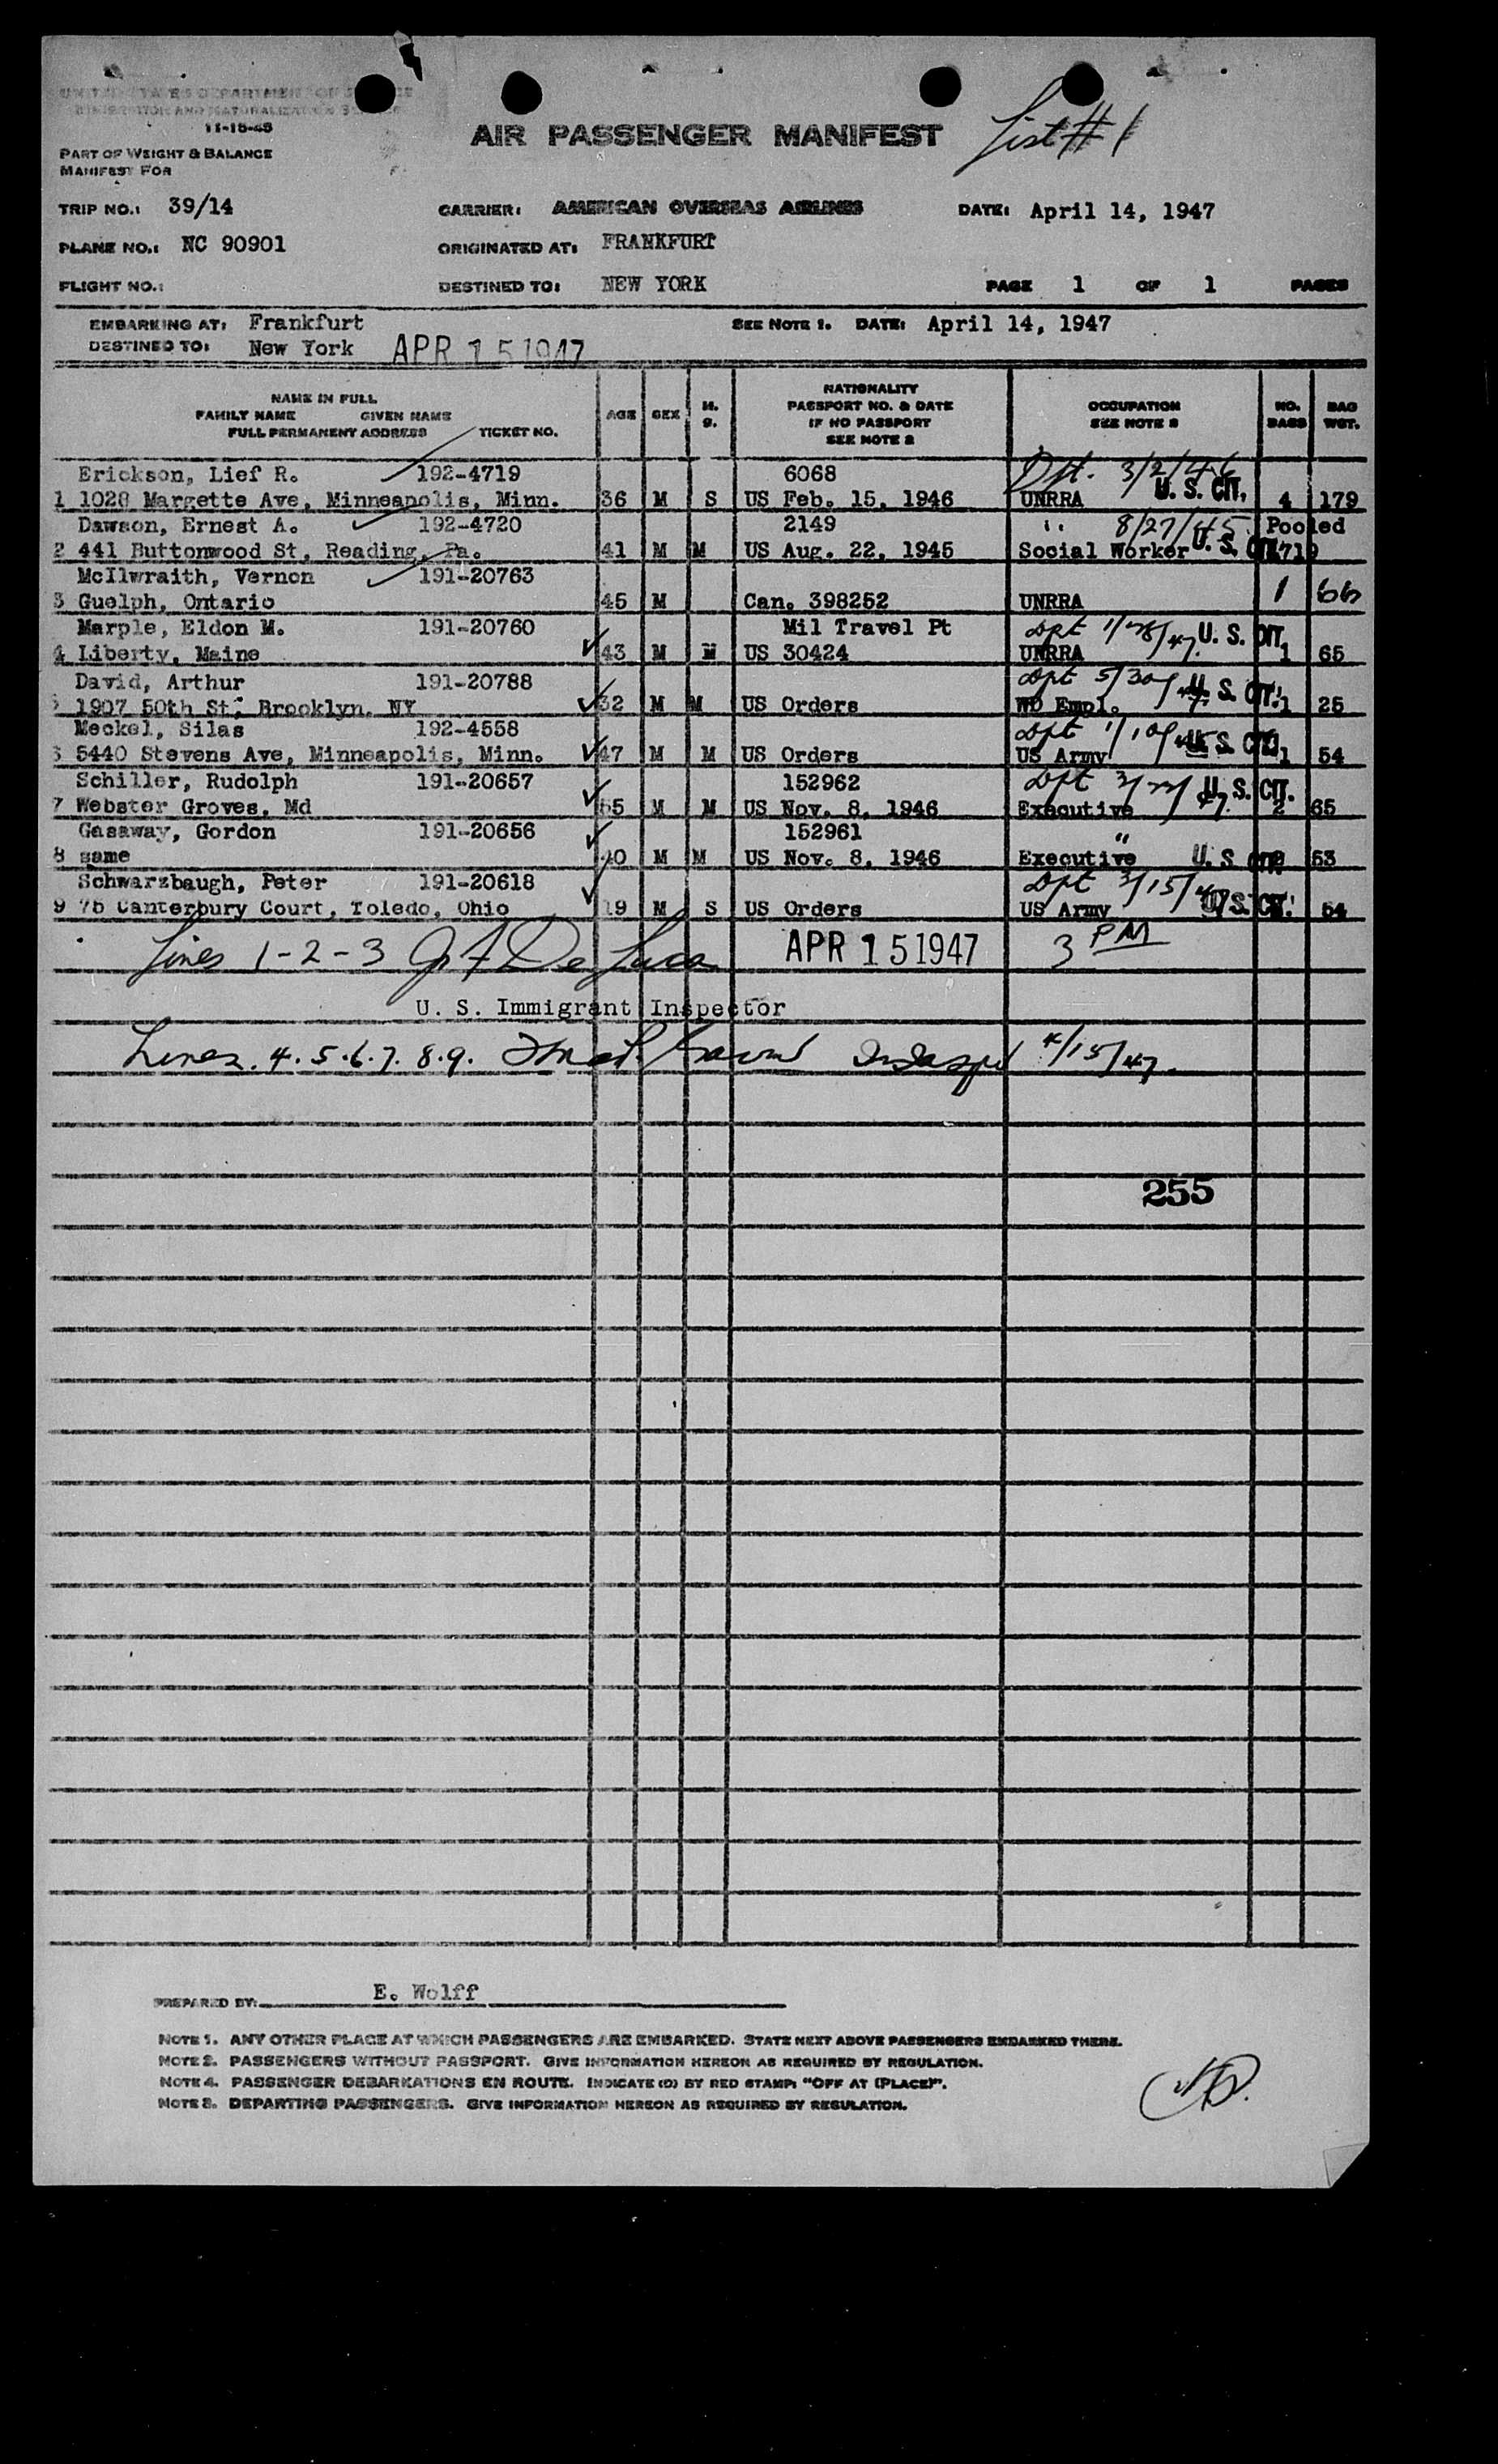 UNITED STATES DEPARTMENT OF JUSTICE
IMMIGRATION AND NATURALIZATION
11-15-45
AIR PASSENGER MANIFEST List # 1
PART OF WEIGHT & BALANCE
MANIFEST FOR
TRIP NO.: 39/14 CARRIER: AMERICAN OVERSEAS AIRLINES DATE: April 14, 1947
PLANE NO.: NC 90901 ORIGINATED AT: FRANKFURT
FLIGHT NO.: DESTINED TO: NEW YORK PAGE 1 OF 1 PAGES
EMBARKING AT: Frankfurt SEE NOTE 1. DATE: April 14, 1947
DESTINED TO: New York APR 15 1947
NAME IN FULL
FAMILY NAME GIVEN NAME
FULL PERMANENT ADDRESS TICKET NO.
AGE SEX M. S.
NATIONALITY
PASSPORT NO. & DATE
IF NO PASSPORT
SEE NOTE 2
OCCUPATION
SEE NOTE 3
NO. BAGS
BAG WGT.
Erickson, Lief R. 192-4719 6068 Dpt. 3/2/46
1 1028 Margette Ave, Minneapolis, Minn. 36 M S US Feb. 15, 1946 UNRRA U. S. CIT. 4 179
Dawson, Ernest A. 192-4720 2149 " 8/27/45 Pooled
2 441 Buttonwood St, Reading, Pa. 41 M M US Aug. 22, 1945 Social Worker U. S. CIT. 4719
McIlwraith, Vernon 191-20763
3 Guelph, Ontario 45 M Can. 398252 UNRRA 1 66
Marple, Eldon M. 191-20760 Mil Travel Pt Dpt 1/28/47. U. S. CIT.
4 Liberty, Maine 43 M M US 30424 UNRRA 1 65
David, Arthur 191-20788 Dpt 5/30/ U. S. CIT.
1907 50th St. Brooklyn, NY 32 M M US Orders WD Empl. 1 25
Meckel, Silas 192-4558 Dpt 1/10/ U. S. CIT.
6 5440 Stevens Ave, Minneapolis, Minn. 47 M M US Orders US Army 1 54
Schiller, Rudolph 191-20657 152962 Dpt 3/22/47. U. S. CIT.
7 Webster Groves, Md 55 M M US Nov. 8, 1946 Executive 2 65
Gasaway, Gordon 191-20656 152961 "
8 same 40 M M US Nov. 8, 1946 Executive U. S. CIT. 53
Schwarzbaugh, Peter 191-20618 Dpt 3/15/47 U. S. CIT.
9 75 Canterbury Court, Toledo, Ohio 19 M S US Orders US Army 54
Lines 1-2-3 De Luca APR 15 1947 3 PM
U. S. Immigrant Inspector
Lines. 4. 5. 6. 7. 8. 9. 4/15/47.
255
PREPARED BY: E. Wolff
NOTE 1. ANY OTHER PLACE AT WHICH PASSENGERS ARE EMBARKED. STATE NEXT ABOVE PASSENGERS EMBARKED THERE.
NOTE 2. PASSENGERS WITHOUT PASSPORT. GIVE INFORMATION HEREON AS REQUIRED BY REGULATION.
NOTE 4. PASSENGER DEBARKATIONS EN ROUTE. INDICATE (D) BY RED STAMP: "OFF AT (PLACE)".
NOTE 3. DEPARTING PASSENGERS. GIVE INFORMATION HEREON AS REQUIRED BY REGULATION.